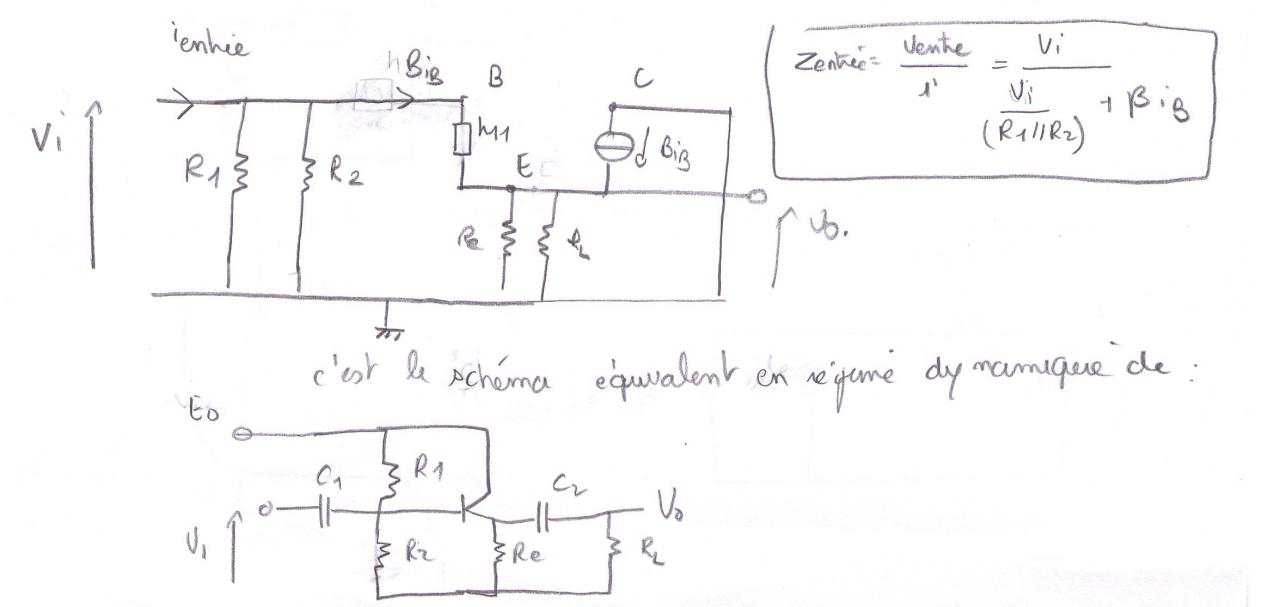 ientrée
h
BiB
B
C
Vi
R1
R2
h11
E
BiB
Re
RL
Vo.
Zentrée = Ventre / i = Vi / Vi/(R1//R2) + βiB
c'est le schéma équivalent en régime dynamique de :
E0
C1
R1
C2
Vo
V1
R2
Re
RL